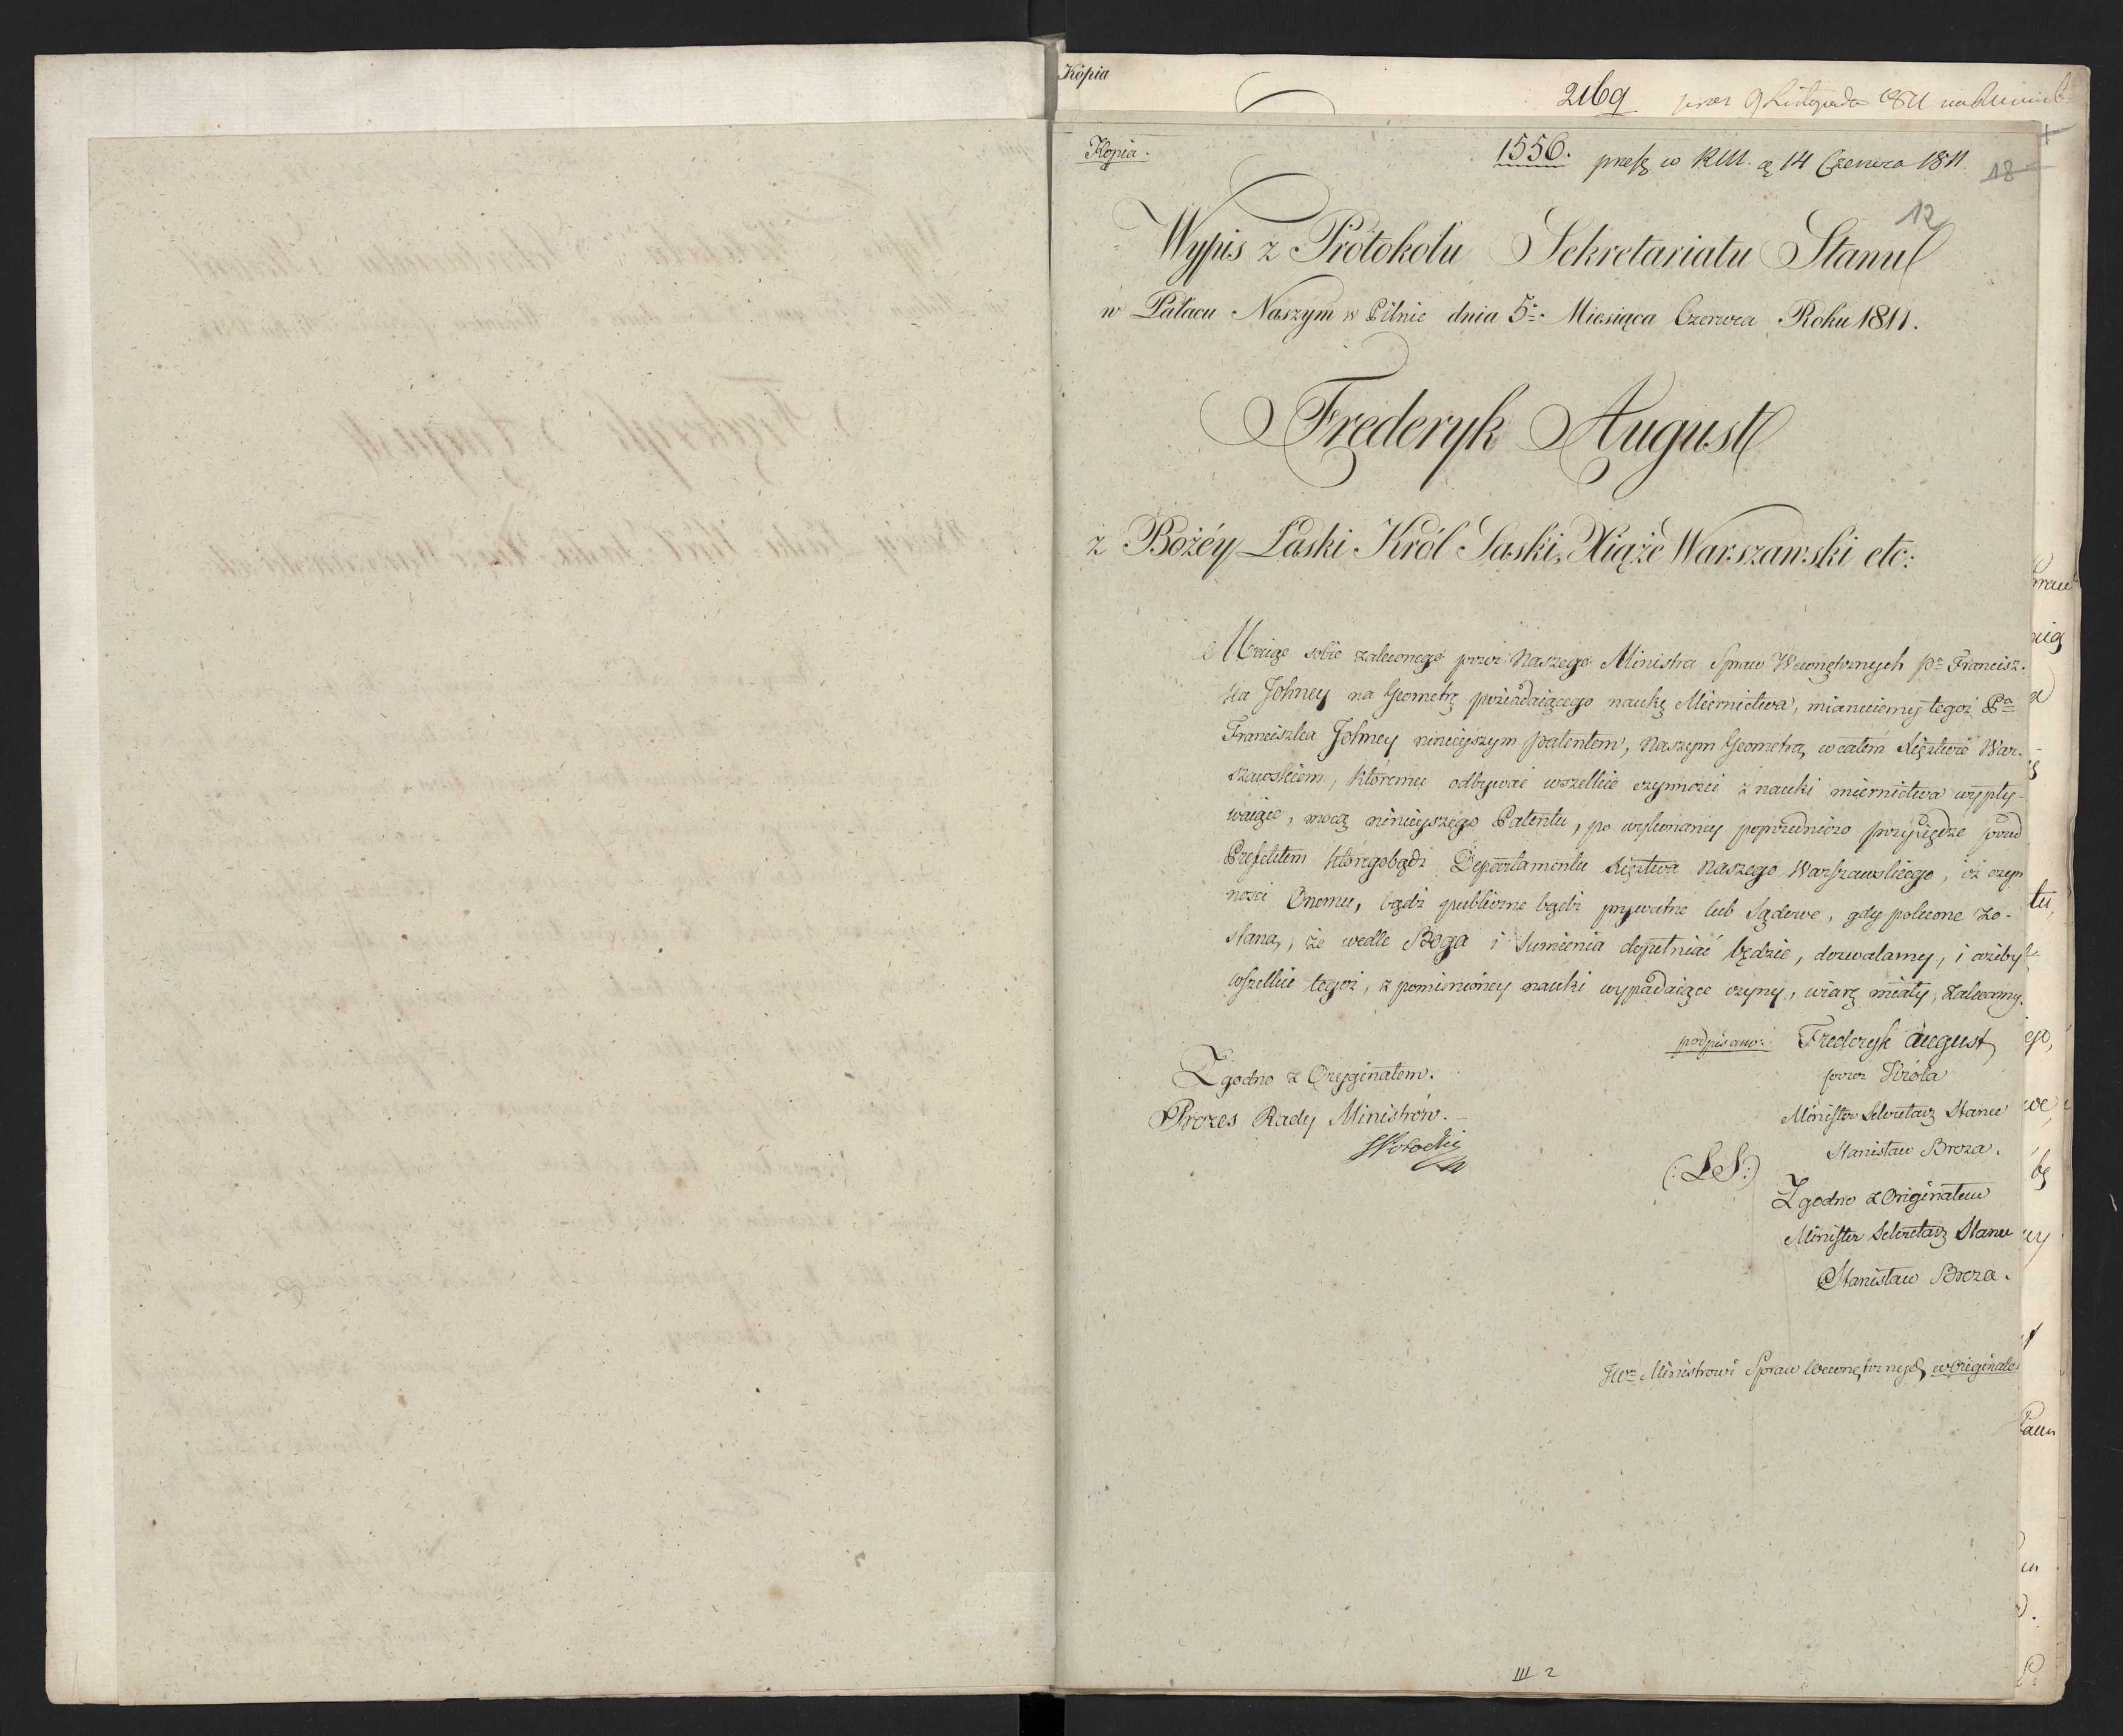 Kopia
2169 9 Listopada 1811
Kopia.
1556. w RM. 14 Czerwca 1811.
18
12
Wypis z Protokołu Sekretariatu Stanu
w Pałacu Naszym w Pilnic dnia 5. Miesiąca Czerwca Roku 1811.
Frederyk August
z Bożéy Łaski Król Saski, Xiąże Warszawski etc:
Maiąc sobie zaleconego przez Naszego Ministra Spraw Wewnętrznych Pa Francisz-
ka Johney na Geometrę posiadaiącego naukę Miernictwa, mianuiemy tegoż Pa
Franciszka Johney ninieyszym patentem, Naszym Geometrą w całém Xięztwie War-
szawskiem, któremu odbywać wszelkie czynności z nauki miernictwa wypły-
waiące, mocą ninieyszego Patentu, po wykonaney poprzedniczo przysiędze przed
Prefektem któregobądź Departamentu Xięztwa Naszego Warszawskiego, iż czyn
ności Onemu, bądź publiczne bądź prywatne lub Sądowe, gdy polecone zo-
staną, że wedle Boga i Sumienia dopełniać będzie, dozwalamy, i ażeby
wszelkie tegoż, z pomienioney nauki wypadaiące czyny, wiarę miały, zalecamy.
podpisano: Frederyk August
przez Króla
Minister Sekretarz Stanu
Stanisław Breza.
(:LS:)
Zgodno z Originałem
Minister Sekretarz Stanu
Stanisław Breza.
Zgodno z Oryginałem.
Prezes Rady Ministrów.
SPotocki
JWu Ministrowi Spraw Wewnętrznych w Originale
III 2